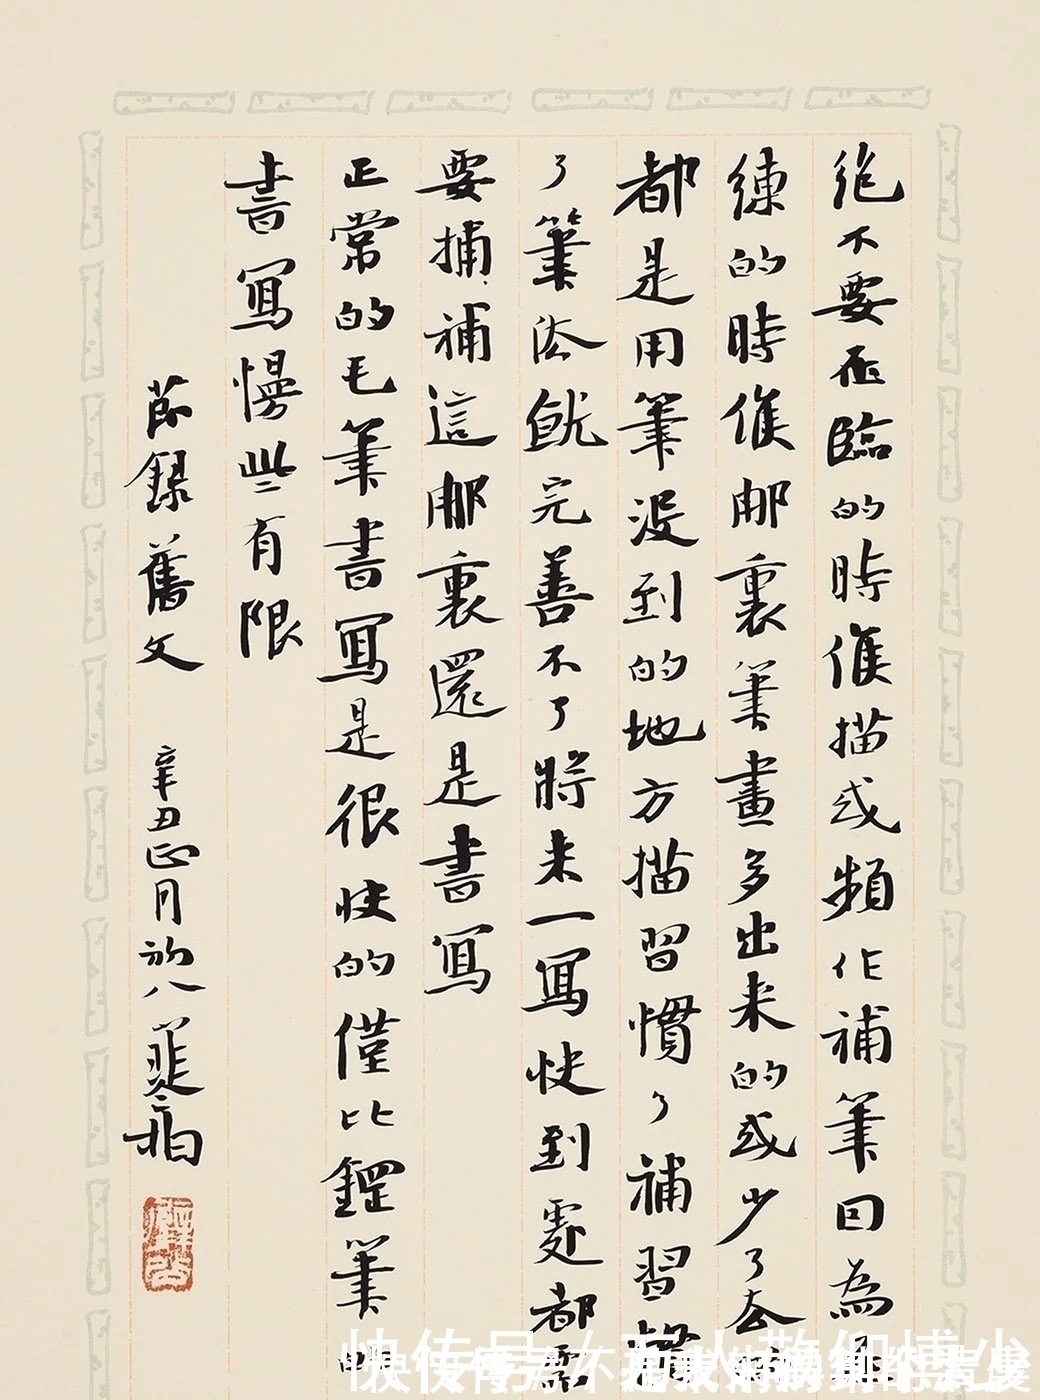 絕不要在臨的時候描或頻作補筆因為在
練的時候那裏筆畫多出來的或少了去
都是用筆沒到的地方描習慣了補習慣
了筆法就完善不了將來一寫快到處都需
要補補這那裏還是書寫
正常的毛筆書寫是很快的僅比鋼筆
書寫慢些有限
節錄舊文 辛丑正月初八
快传号/